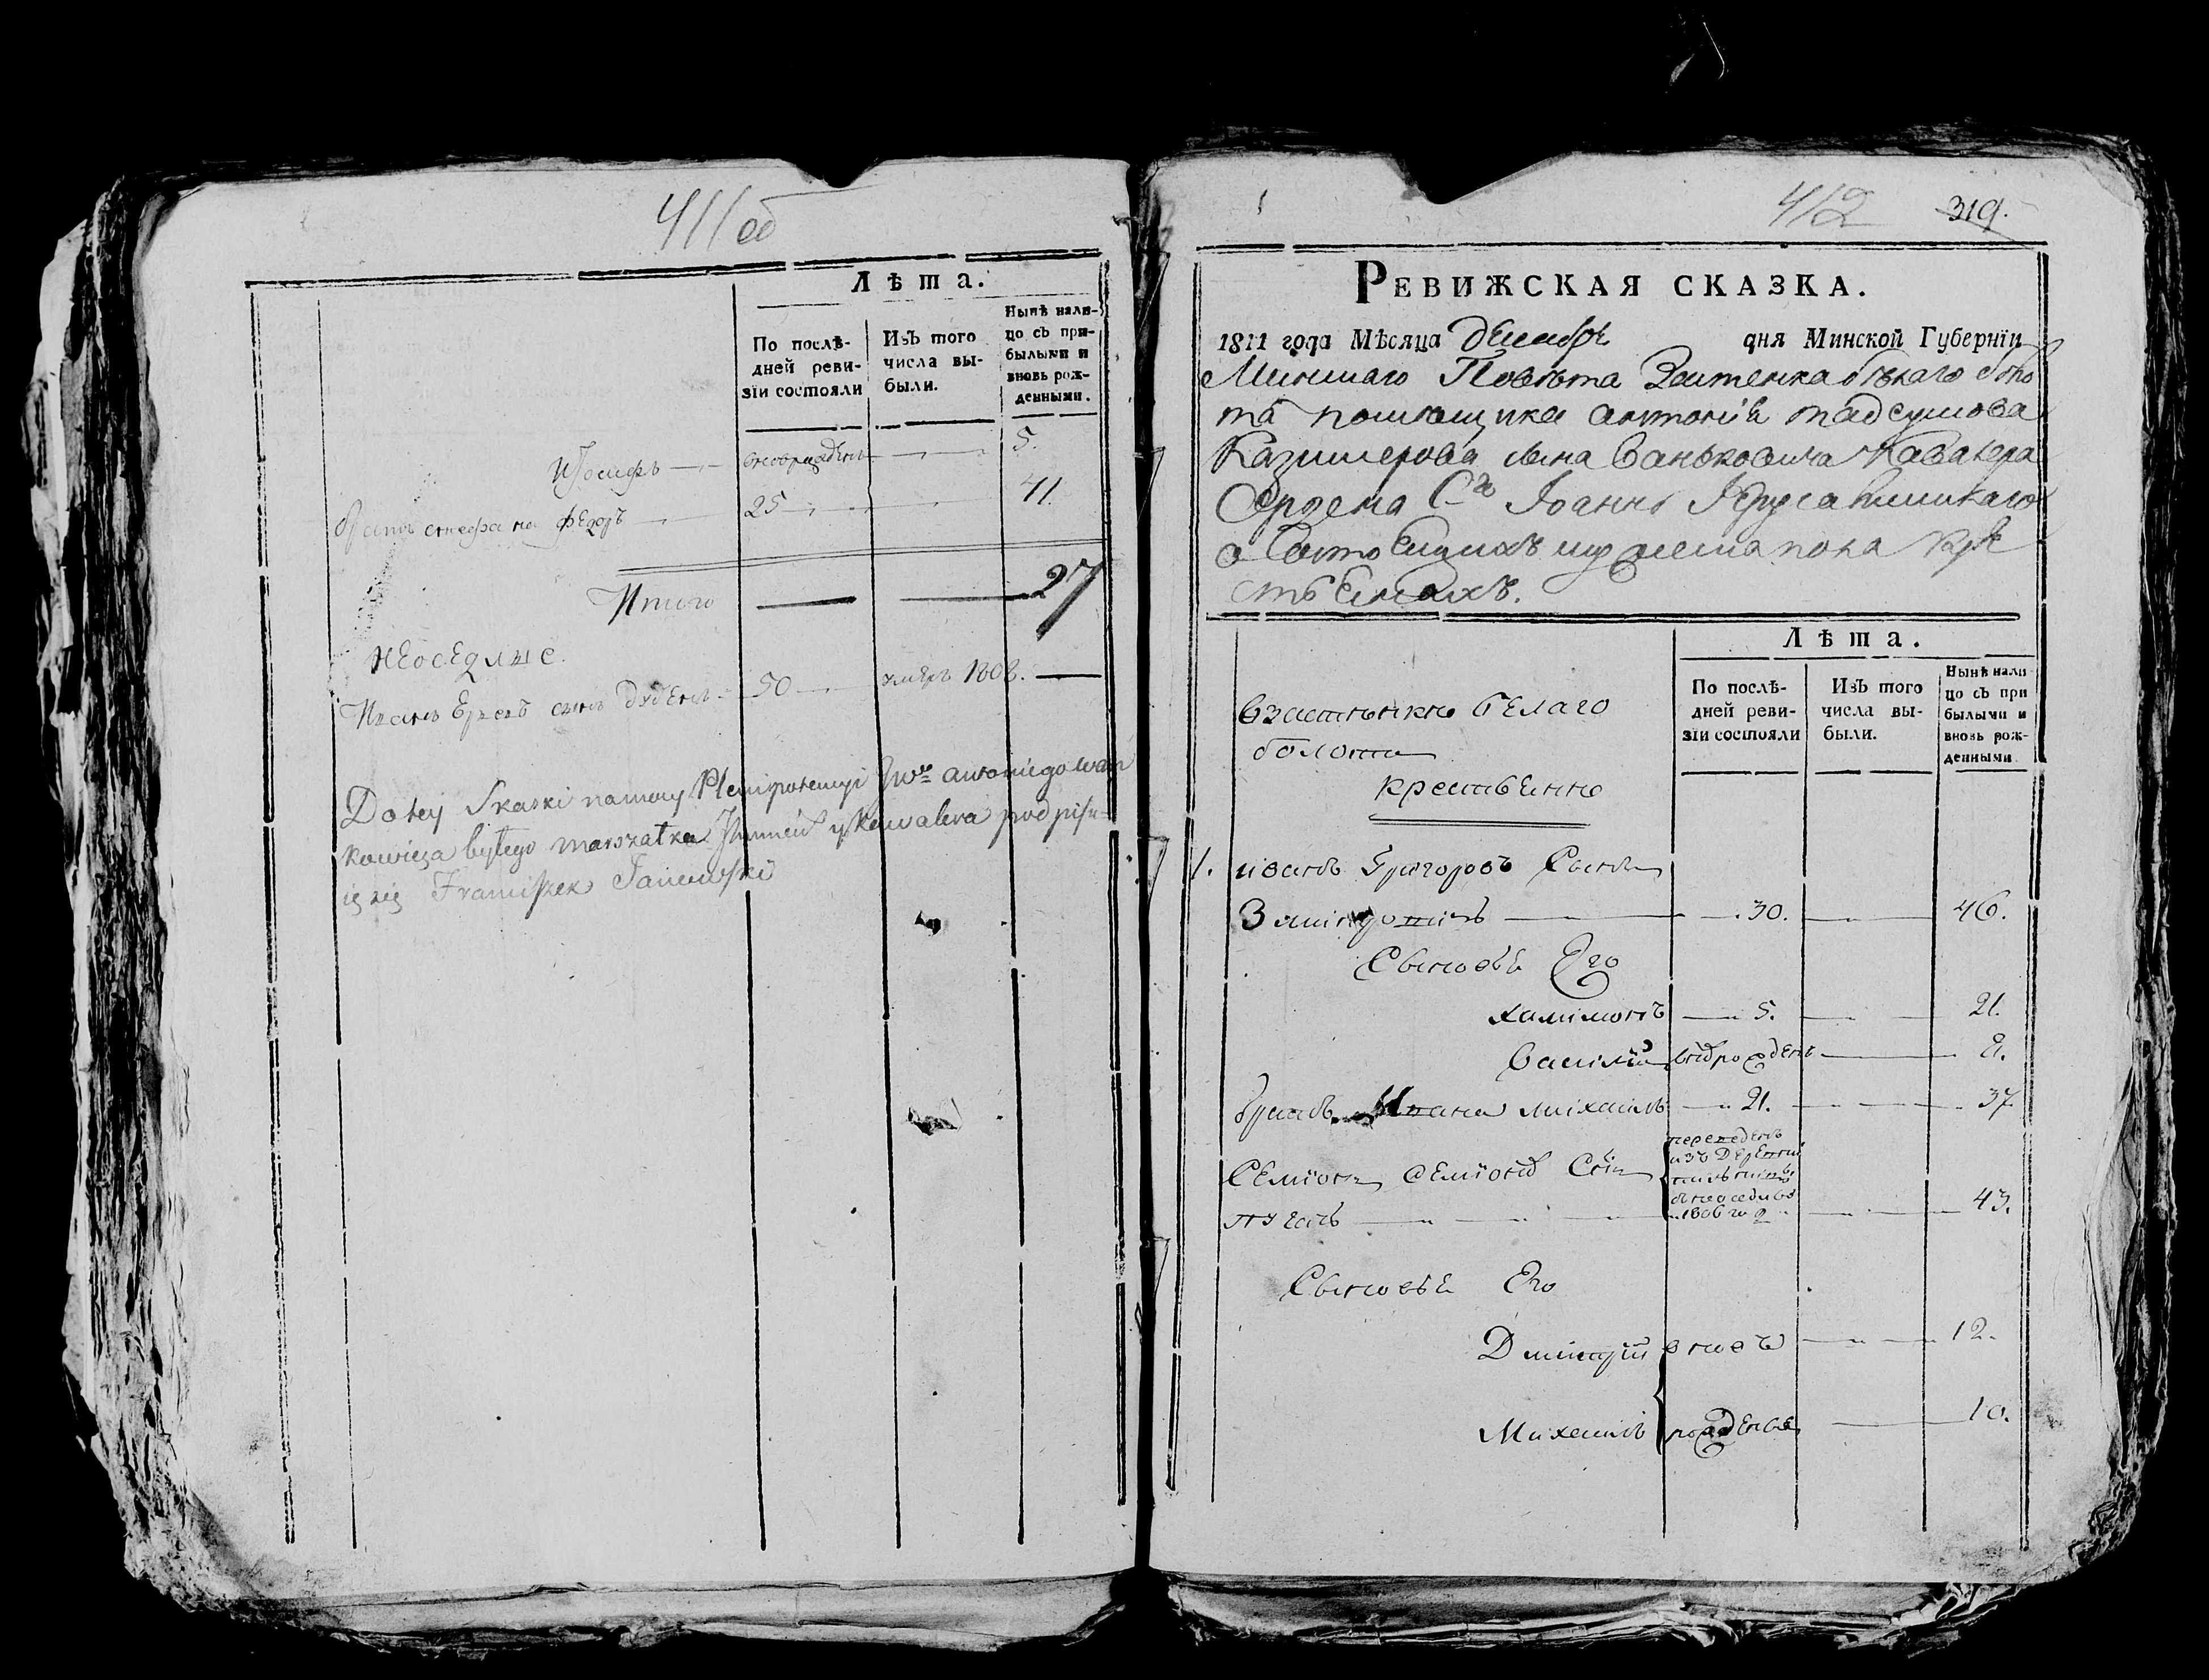 411 об
Лѣта.
По послѣ-
дней реви-
зіи состояли
Изъ того
числа вы-
были.
Нынѣ нали-
цо съ при-
былыми и
вновь рож-
денными.
Іосифъ — новорожденъ — 5.
братъ стефана Федоръ — 25 — 41.
Итого — — 27
неоседлые.
Иванъ сынъ — 50 — умеръ 1808. —
Do tey Skaski na mocy Plenipotencyi JWo Antoniego Wań
kowicza byłego marszałka y Kawalera podpisu=
ię się Franciszek Janowski
412 319.
Ревижская сказка.
1811 года Мѣсяца декабря дня Минской Губерніи
Минскаго Повѣта Застенка бѣлаго боло
та помѣщика антонія тадеушова
Казимерова сына Ваньковича Кавалера
Ордена Сго Іоанна Ерусалимскаго
о состоящихъ мужеска пола кре
стьянахъ.
Лѣта.
По послѣ-
дней реви-
зіи состояли
Изъ того
числа вы-
были.
Нынѣ нали-
цо съ при
былыми и
вновь рож-
денными.
Взастенке белаго
болота
крестьяне
1. иванъ Григоровъ Сынъ
— .30. — 46.
Сыновья Его
халимонъ — 5. — 21.
василій новорожденъ — 2.
братъ Ивана михаилъ — 21. — 37.
Семіонъ семіоновъ Сынъ
переведенъ
изъ деревни
1806 го
— 43.
Сыновья Его
Дмитрій вновь — 12.
Михаилъ рожденые — 10.